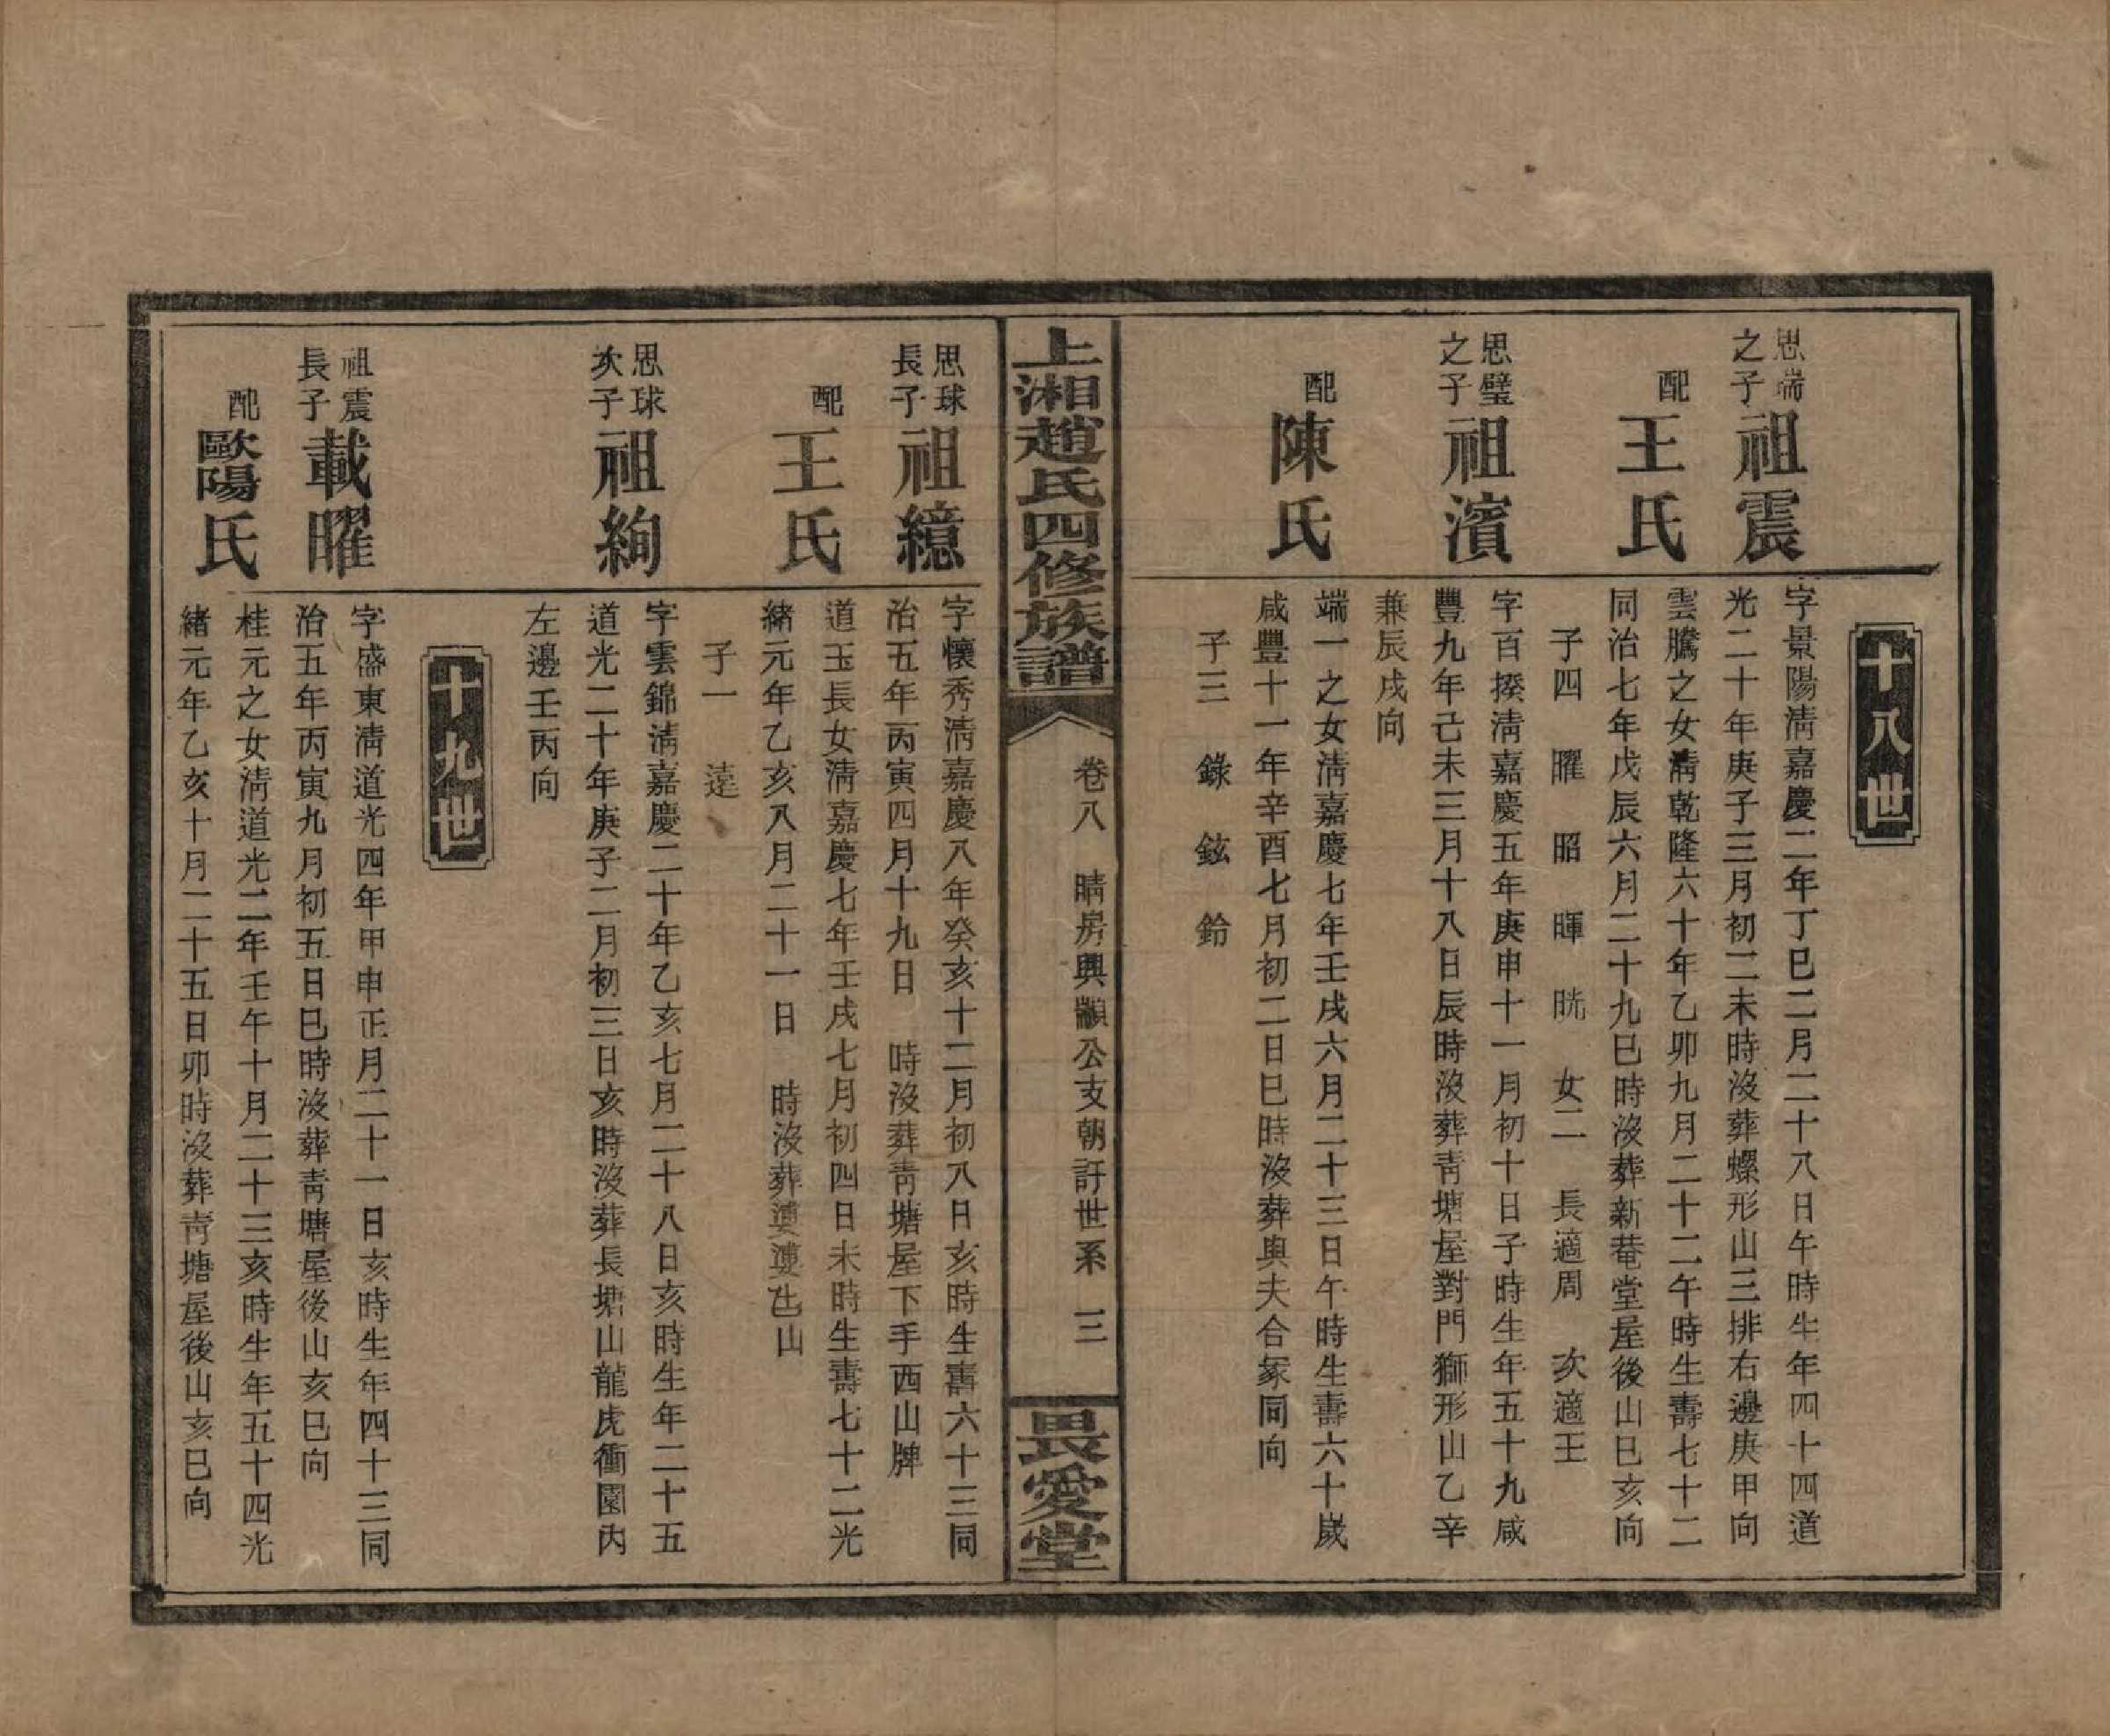 十八世
思端之子祖震
字景陽淸嘉慶二年丁巳二月二十八日午時生年四十四道
光二十年庚子三月初二未時沒葬螺形山三排右邊庚甲向
配王氏
雲騰之女淸乾隆六十年乙卯九月二十二午時生壽七十二
同治七年戊辰六月二十九巳時沒葬新菴堂屋後山巳亥向
子四 曜 昭 暉 晄 女二 長適周 次適王
思璧之子祖濱
字百揆淸嘉慶五年庚申十一月初十日子時生年五十九咸
豐九年己未三月十八日辰時沒葬靑塘屋對門獅形山乙辛
兼辰戌向
配陳氏
端一之女淸嘉慶七年壬戌六月二十三日午時生壽六十歲
咸豐十一年辛酉七月初二日巳時沒葬與夫合冢同向
子三 錄 鉉 鈴
上湘趙氏四修族譜
卷八 晴房興顯公支朝許世系 三
畏愛堂
思球長子祖繶
字懷秀淸嘉慶八年癸亥十二月初八日亥時生壽六十三同
治五年丙寅四月十九日 時沒葬靑塘屋下手西山牌
配王氏
道玉長女淸嘉慶七年壬戌七月初四日未時生壽七十二光
緒元年乙亥八月二十一日 時沒葬 山
子一 達
思球次子祖絢
字雲錦淸嘉慶二十年乙亥七月二十八日亥時生年二十五
道光二十年庚子二月初三日亥時沒葬長塘山龍虎衝園內
左邊壬丙向
十九世
祖震長子載曜
字盛東淸道光四年甲申正月二十一日亥時生年四十三同
治五年丙寅九月初五日巳時沒葬靑塘屋後山亥巳向
配歐陽氏
桂元之女淸道光二年壬午十月二十三亥時生年五十四光
緒元年乙亥十月二十五日卯時沒葬靑塘屋後山亥巳向